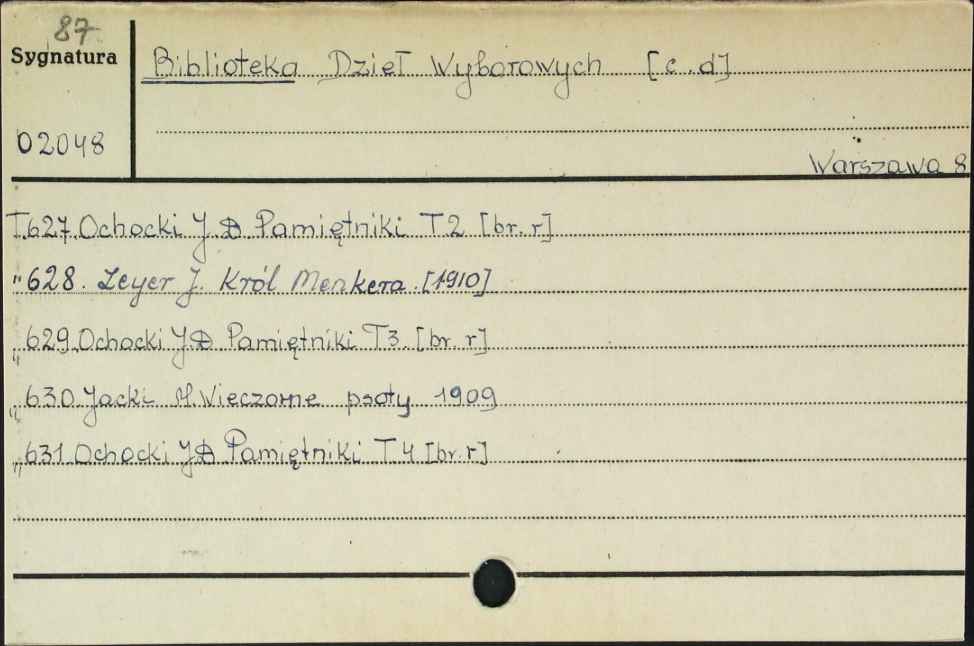 87
Sygnatura
Biblioteka Dzieł Wyborowych [c. d]
02048
Warszawa 8
T.627 Ochocki J D Pamiętniki T2 [br. r]
" 628. Leyer J. Król Menkera [1910]
" 629 Ochocki J D Pamiętniki T3 [br. r]
" 630 Jacki M Wieczorne psoty 1909
" 631 Ochocki J D Pamiętniki T4 [br. r]